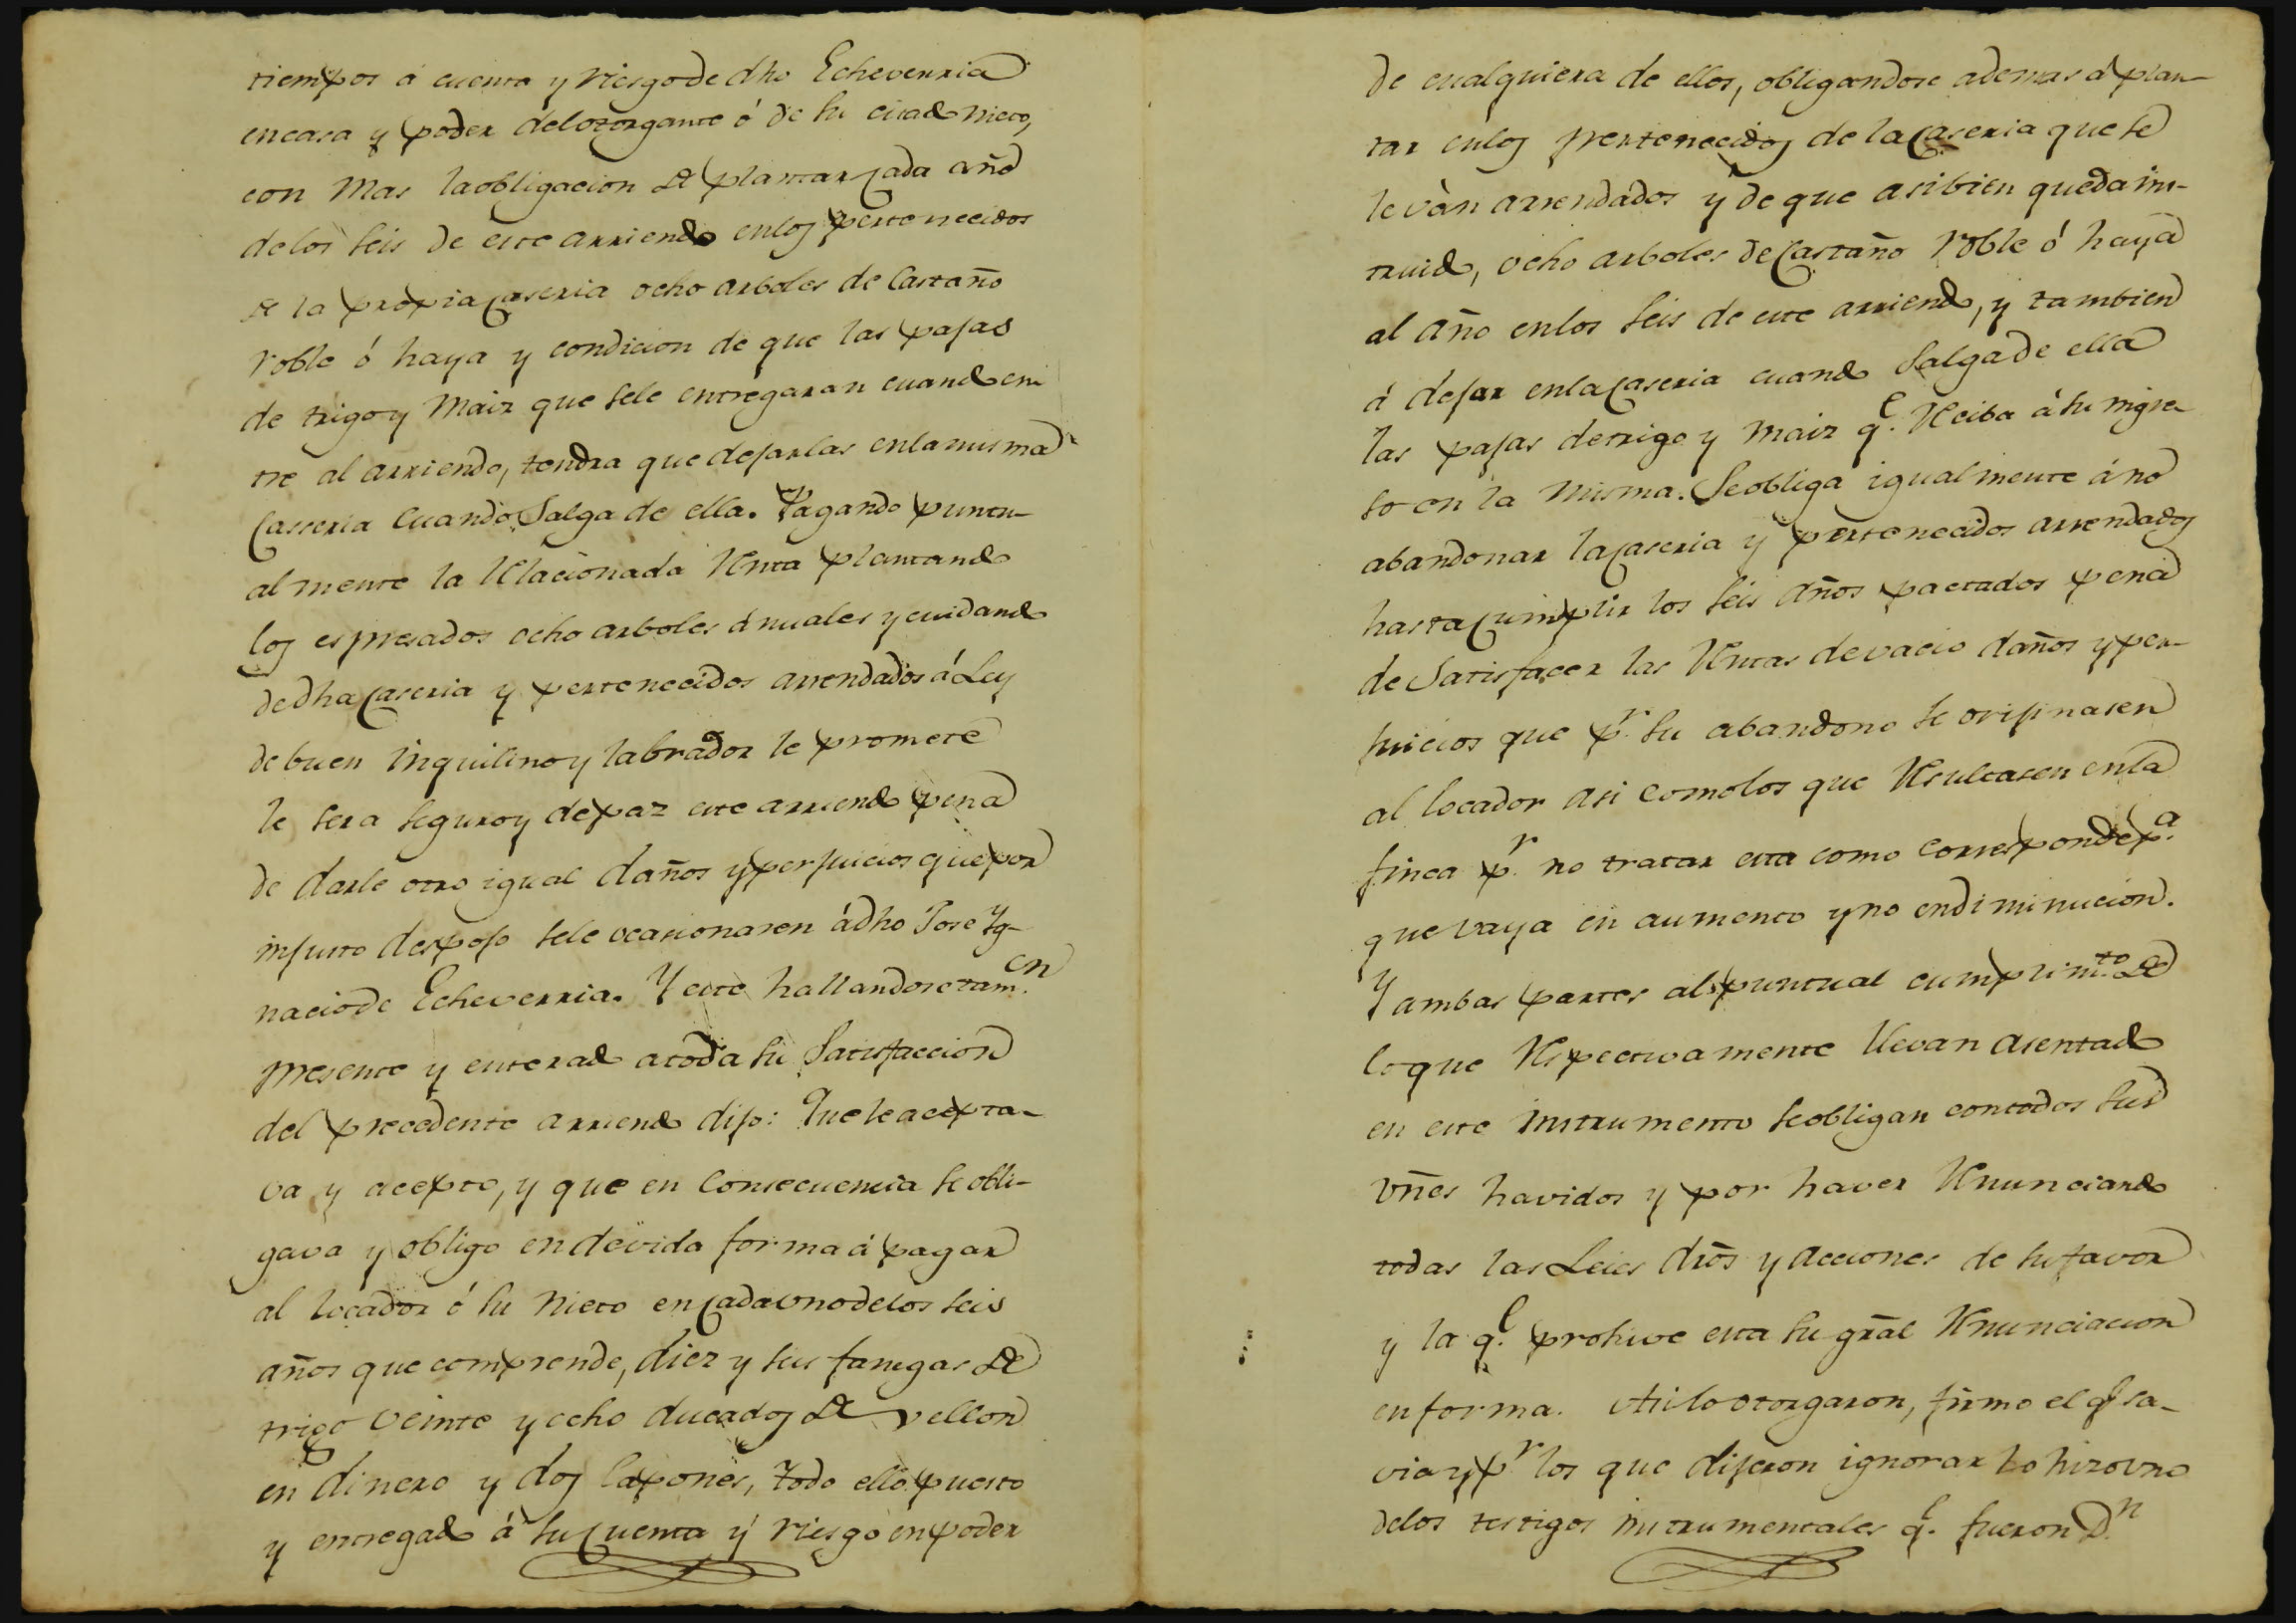 tiempos á cuenta y riesgo de dho Echeverria
en casa y poder del otorgante ó de su citado nieto,
con mas la obligacion de plantar cada año
de los seis de este arriendo en los pertenecidos
de la propia Caseria ocho arboles de Castaño
roble ó haya y condicion de que las pajas
de trigo y maiz que sele entregaran cuando en
tre al arriendo, tendra que dejarlas en la misma
Casseria cuando Salga de ella. Pagando puntu-
almente la relacionada renta plantando
los espresados ocho arboles ánuales y cuidando
de dha Caseria y pertenecidos arrendados á Ley
de buen inquilino y labrador le promete
le sera seguro y de paz este arriendo pena
de darle otro igual daños y perjuicios que por
injusto despojo sele ocasionaren á dho Jose Yg-
nacio de Echeverria. Y este hallandose tam.en
presente y enterado a toda su Satisfaccion
del precedente arriendo dijo: Que le acepta-
va y acepto, y que en Consecuencia se obli-
gava y obligo en devida forma á pagar
al locador ó su nieto en cada uno de los seis
años que comprende, diez y seis fanegas de
trigo veinte y ocho ducados de vellon
en dinero y dos Capones, todo ello puesto
y entregado á su Cuenta y riesgo en poder
de cualquiera de ellos, obligandose ademas á plan-
tar en los pertenecidos de la Caseria que se
le ván arrendados y de que asibien queda ins-
truido, ocho arboles de Castaño roble ó haya
al año en los seis de este arriendo, y tambien
á dejar en la Caseria cuando Salga de ella
las pajas de trigo y maiz q.e reciba á su ingre-
so en la misma. Se obliga igualmente á no
abandonar la Caseria y pertenecidos arrendados
hasta Cumplir los seis años pactados pena
de Satisfacer las rentas de vacio daños y per-
juicios que p.r su abandono se orijinasen
al locador asi como los que resultasen en la
finca p.r no tratar esta como corresponde p.a
que vaya en aumento y no en diminucion.
Y ambas partes al puntual cumplim.to de
lo que respectivamente llevan asentado
en este instrumento se obligan con todos sus
vñes havidos y por haver renunciando
todas las Leies dros y acciones de su favor
y la q.e prohive esta su gral renunciacion
en forma. Asi lo otorgaron, firmo el q sa-
via y p.r los que dijeron ignorar lo hizo uno
de los testigos instrumentales q.e fueron D.n